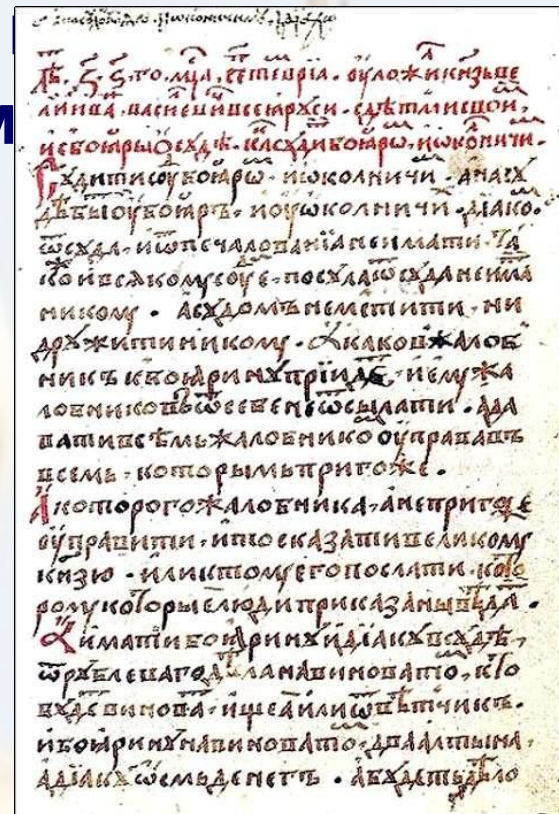 лѣ. ҂ꙃ. ꙅ. го. мца, сетевріа. оуложи кнзь ве
ликіи ива, василеви всеа руси. с дѣтми свои,
и с боары о судѣ. ка судити боаро, и ѡколничи.
Судити су боаро. и ѡколничи. а на су
дѣ быти оу боаръ. и оу ѡколничи. діако.
ѿ суда. и ѿ печалованіа не имати. та
ко и всякому суе. посула ѿ суда не има
никому. а судомъ не мстити. ни
дружити никому. А каков жалоб
никъ къ боарину пріиде. и ему жа
лобниковъ ѿ себе не ѿсылати. а да
вати всѣмъ жалобнико оуправавъ
всемь. которымь пригоже.
А которого жалобника. а не пригоже
оуправити. и то сказати великому
кнзю. или к тому его послати. кото
рому которые люди приказаны вѣда.
А имати боарину и діаку в судѣ,
ѿ рублеваго дѣла на виновато, кто
буде винова. ищеа или ѿвѣтчикъ.
и боарину на виновато. два алтына.
а діаку ѡсмь денегъ. а будетъ дѣло
М